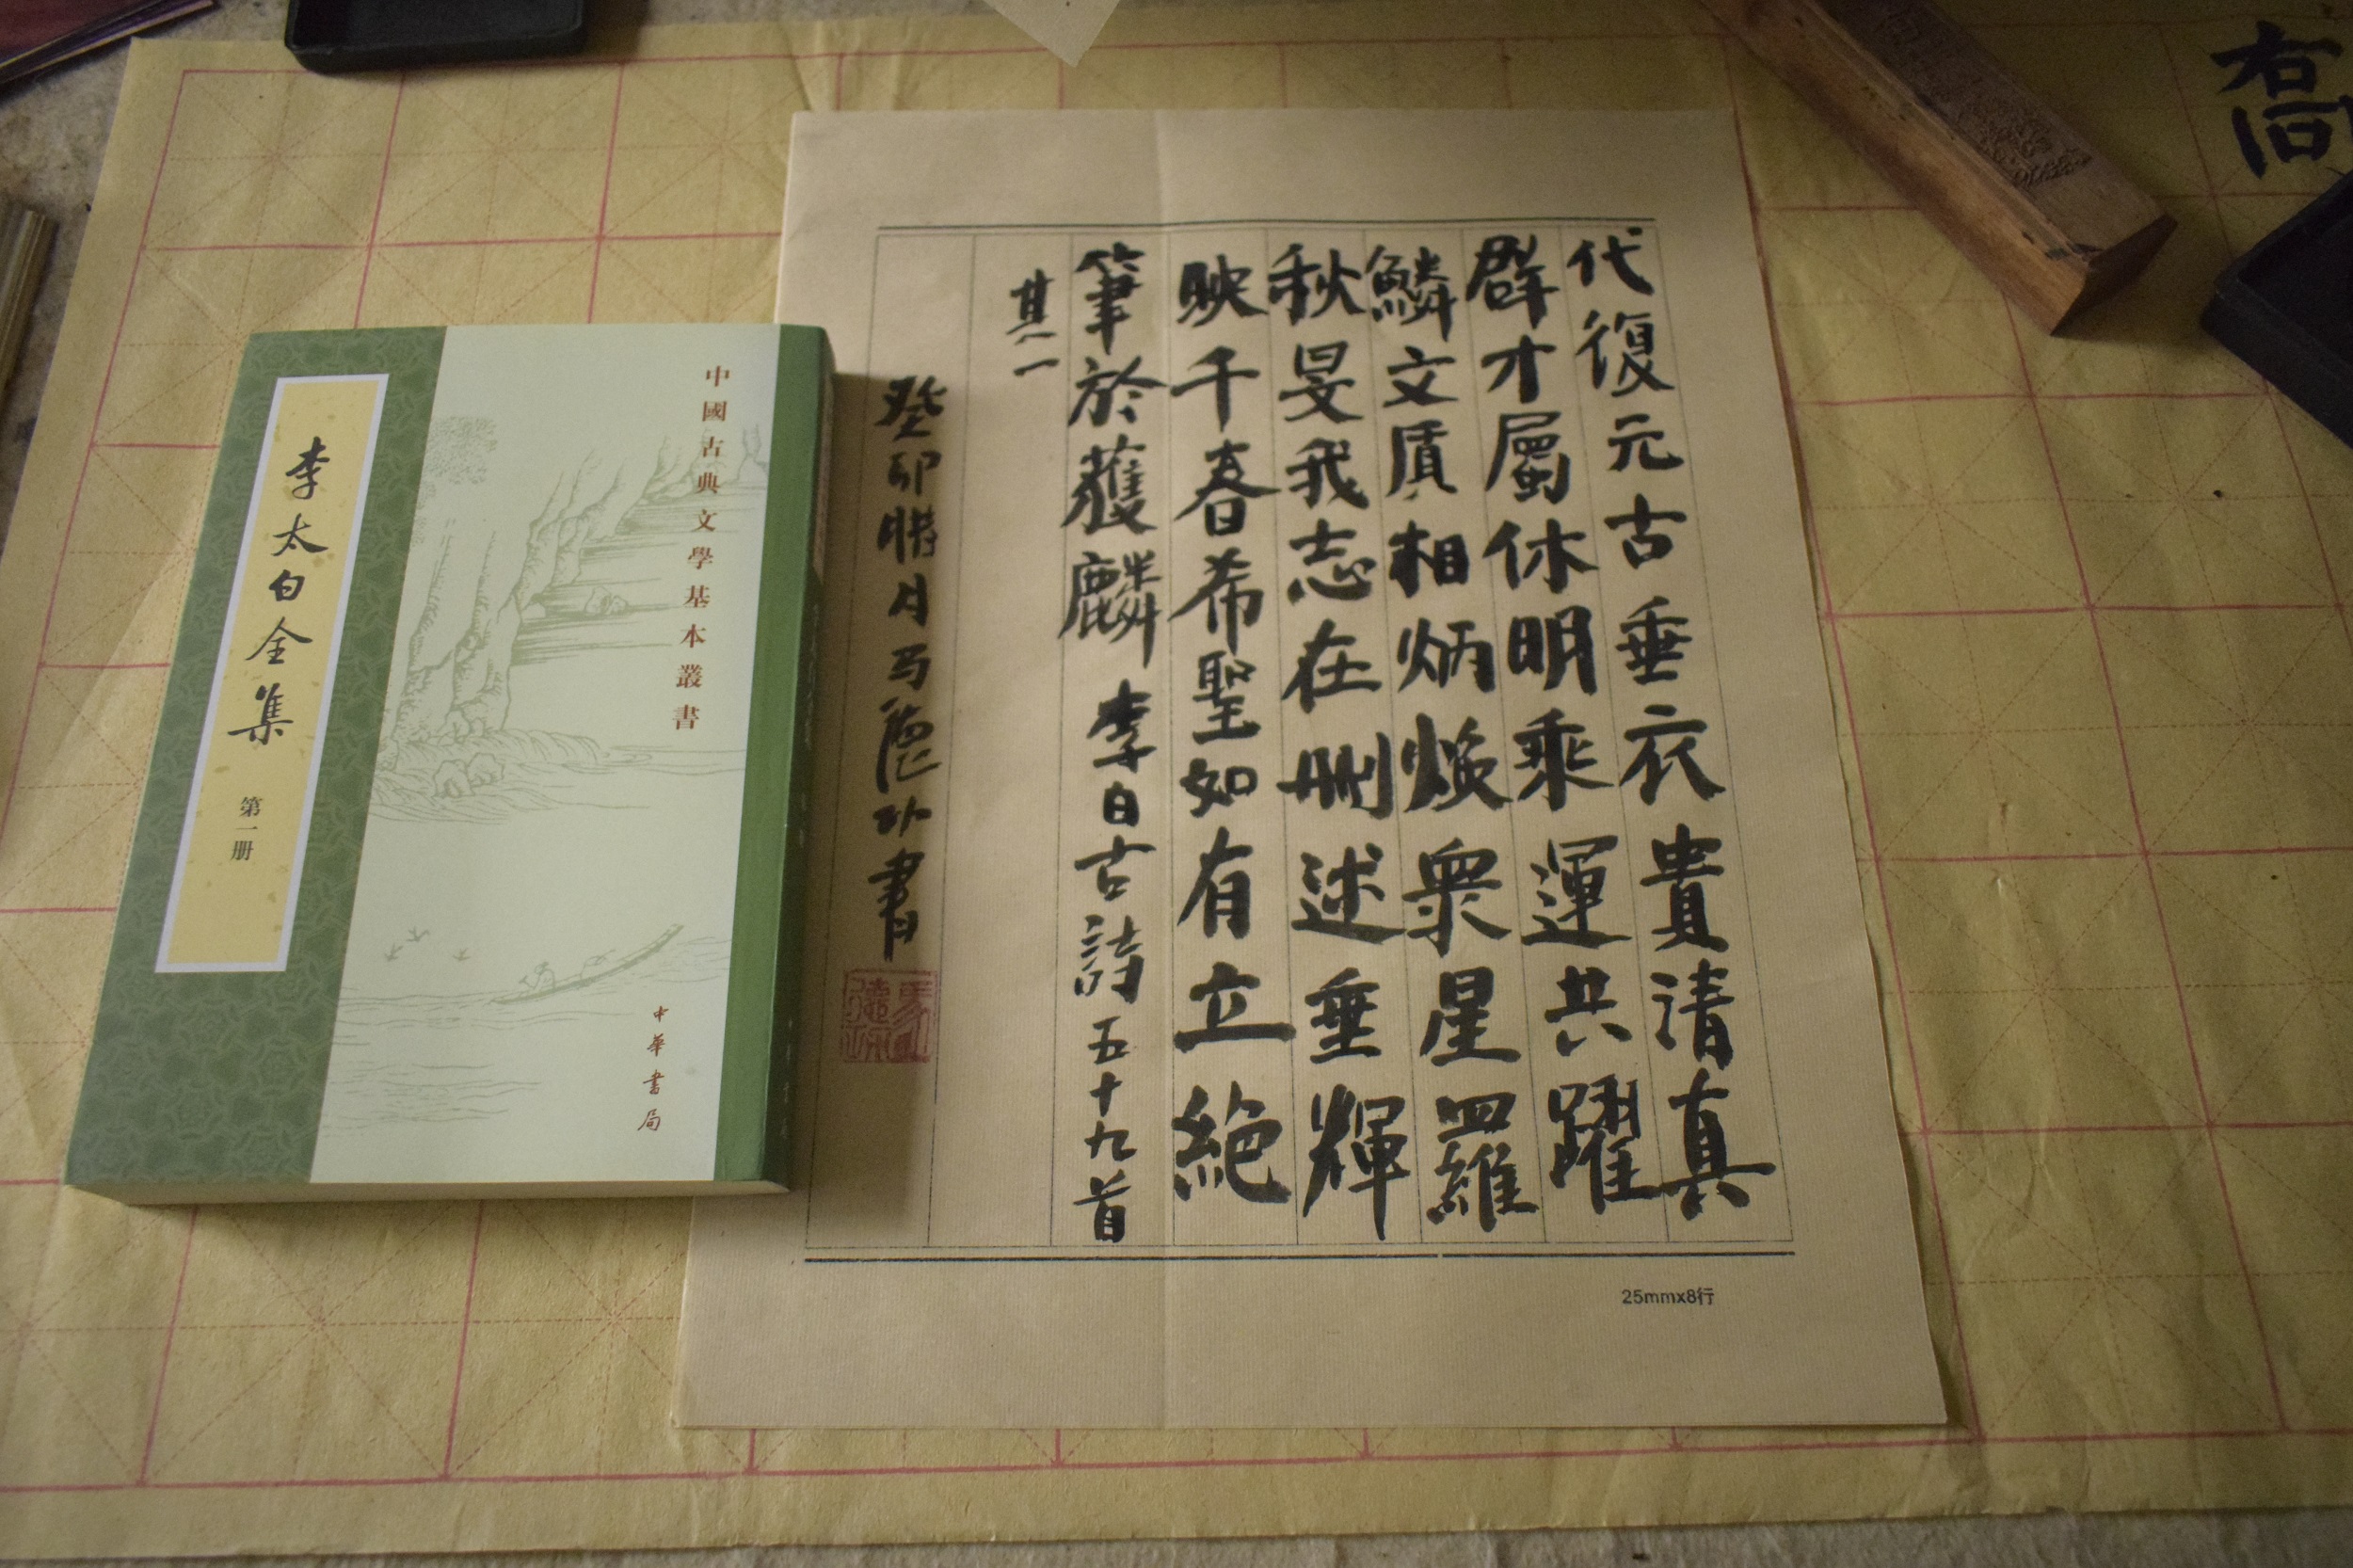 代復元古垂衣貴清真
群才屬休明乘運共躍
鱗文質相炳煥眾星羅
秋旻我志在刪述垂輝
映千春希聖如有立絕
筆於獲麟 李白古詩五十九首
其一
癸卯腊月马德功書
25mmx8行
中國古典文學基本叢書
李太白全集
第一册
中華書局